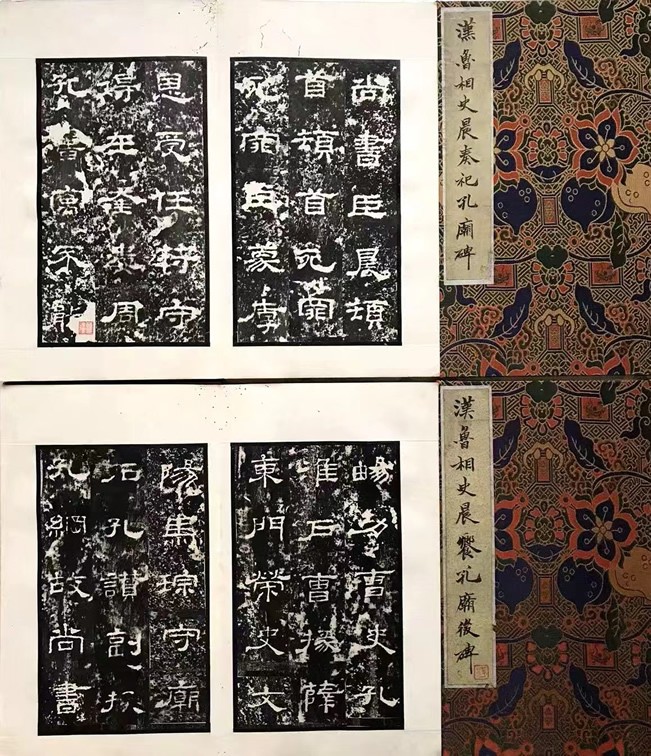 漢魯相史晨奏祀孔廟碑
尚書臣晨頓
首頓首死罪
死罪臣蒙厚
恩受任符守
得在奎婁周
孔舊寓不能
漢魯相史晨饗孔廟後碑
暢功曹史孔
淮戶曹掾薛
東門榮史文
陽馬琮守廟
百石孔讃副掾
孔綱故尚書